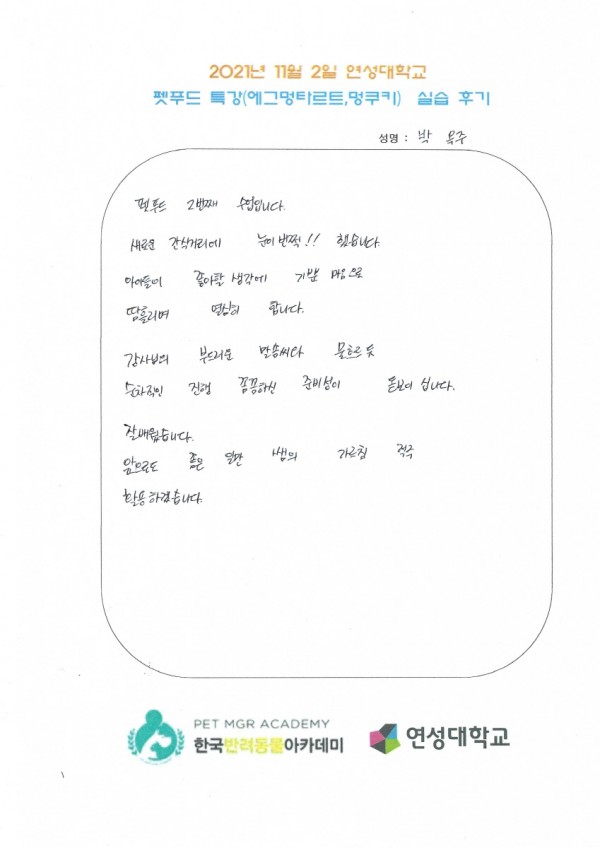 2021년 11월 2일 연성대학교
펫푸드 특강(에그멍타르트,멍쿠키) 실습 후기
성명 : 박 옥주
펫푸드 2번째 수업입니다.
새로운 간식거리에 눈이 번쩍!! 했습니다.
아이들이 좋아할 생각에 기쁜 마음으로
땀흘리며 열심히 합니다.
강사님의 부드러운 말솜씨와 물흐르듯
순차적인 진행 꼼꼼하신 준비성이 돋보이 십니다.
잘배웠습니다.
앞으로도 좋은 쌤의 가르침 적극
활용하겠습니다.
PET MGR ACADEMY
한국반려동물아카데미
연성대학교